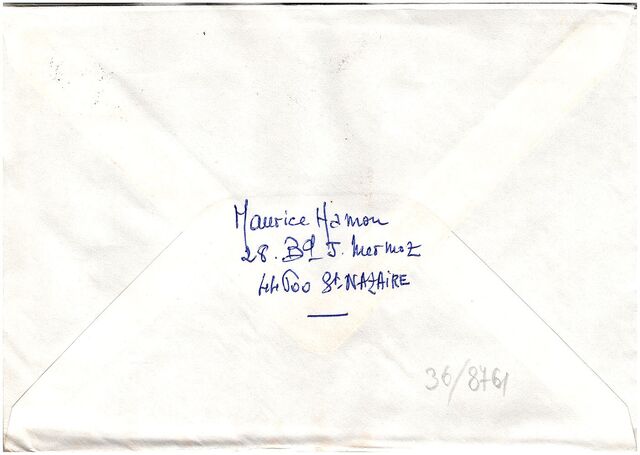 Maurice Hamon
28. Bd J. Mermoz
44600 St-NAZAIRE
36/8761